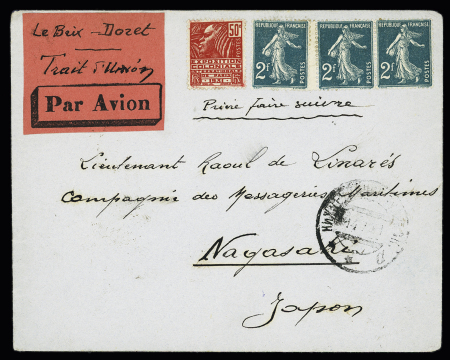 Le Brix - Doret
Trait d'Union
Par Avion
50c
EXPOSITION
COLONIALE
INTERNATIONALE
PARIS 1931
REPUBLIQUE FRANCAISE
2F
POSTES
REPUBLIQUE FRANCAISE
2F
POSTES
REPUBLIQUE FRANCAISE
2F
POSTES
Prière faire suivre
Lieutenant Raoul de Linarés
Compagnie des Messageries Maritimes
Nagasaki
Japon